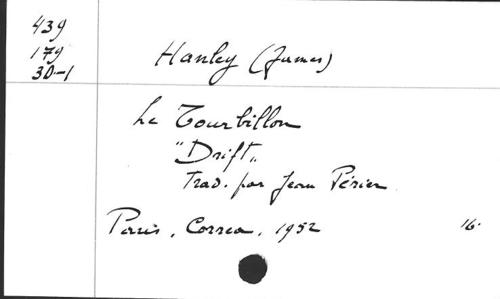 439
179
30-1
Hanley (James)
Le Tourbillon
"Drift"
Trad. par Jean Périer
Paris, Correa, 1952 16°